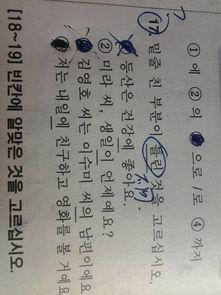 ① 에 ② 의 으로/로 ④ 까지
17. 밑줄 친 부분이 틀린 것을 고르십시오.
등산은 건강에 좋아요.
② 미라 씨, 생일이 언제예요?
김영호 씨는 이수미 씨의 남편이에요
저는 내일에 친구하고 영화를 볼 거예요
[18~19] 빈칸에 알맞은 것을 고르십시오.